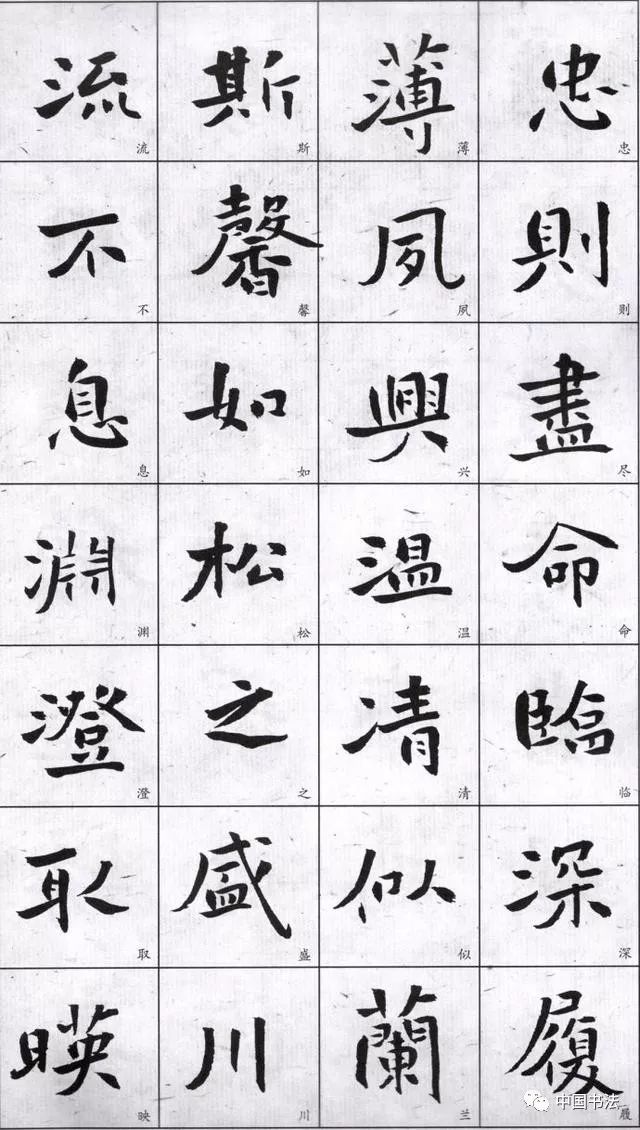 忠則盡命臨深履
薄夙興温凊似蘭
斯馨如松之盛川
流不息淵澄取暎
忠则尽命临深履
薄夙兴温清似兰
斯馨如松之盛川
流不息渊澄取映
中国书法